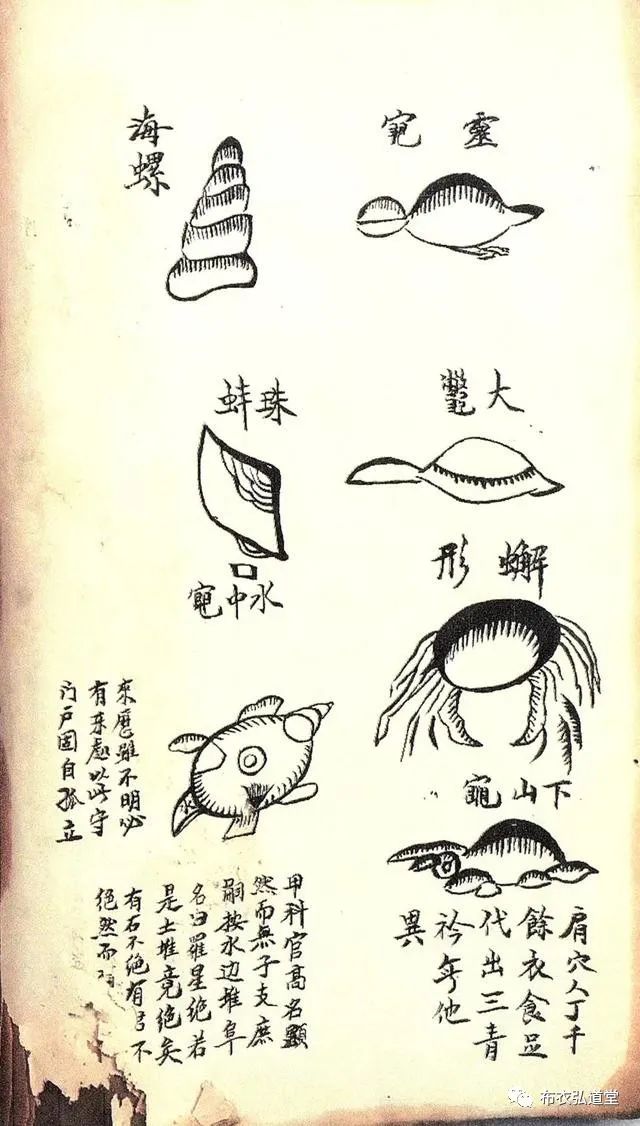 靈龜
大鼈
蠏形
下山龜
肩穴人丁千
餘衣食足
代出三青
衿無他
異
海
螺
珠蚌
水中龜
水
來歷雖不明必
有來處以此守
门户固自孤立
甲科官高名顯
然而無子支庶
嗣按水边堆阜
名曰羅星绝若
是土堆竟绝矣
有石不绝有不
绝然而
布衣弘道堂